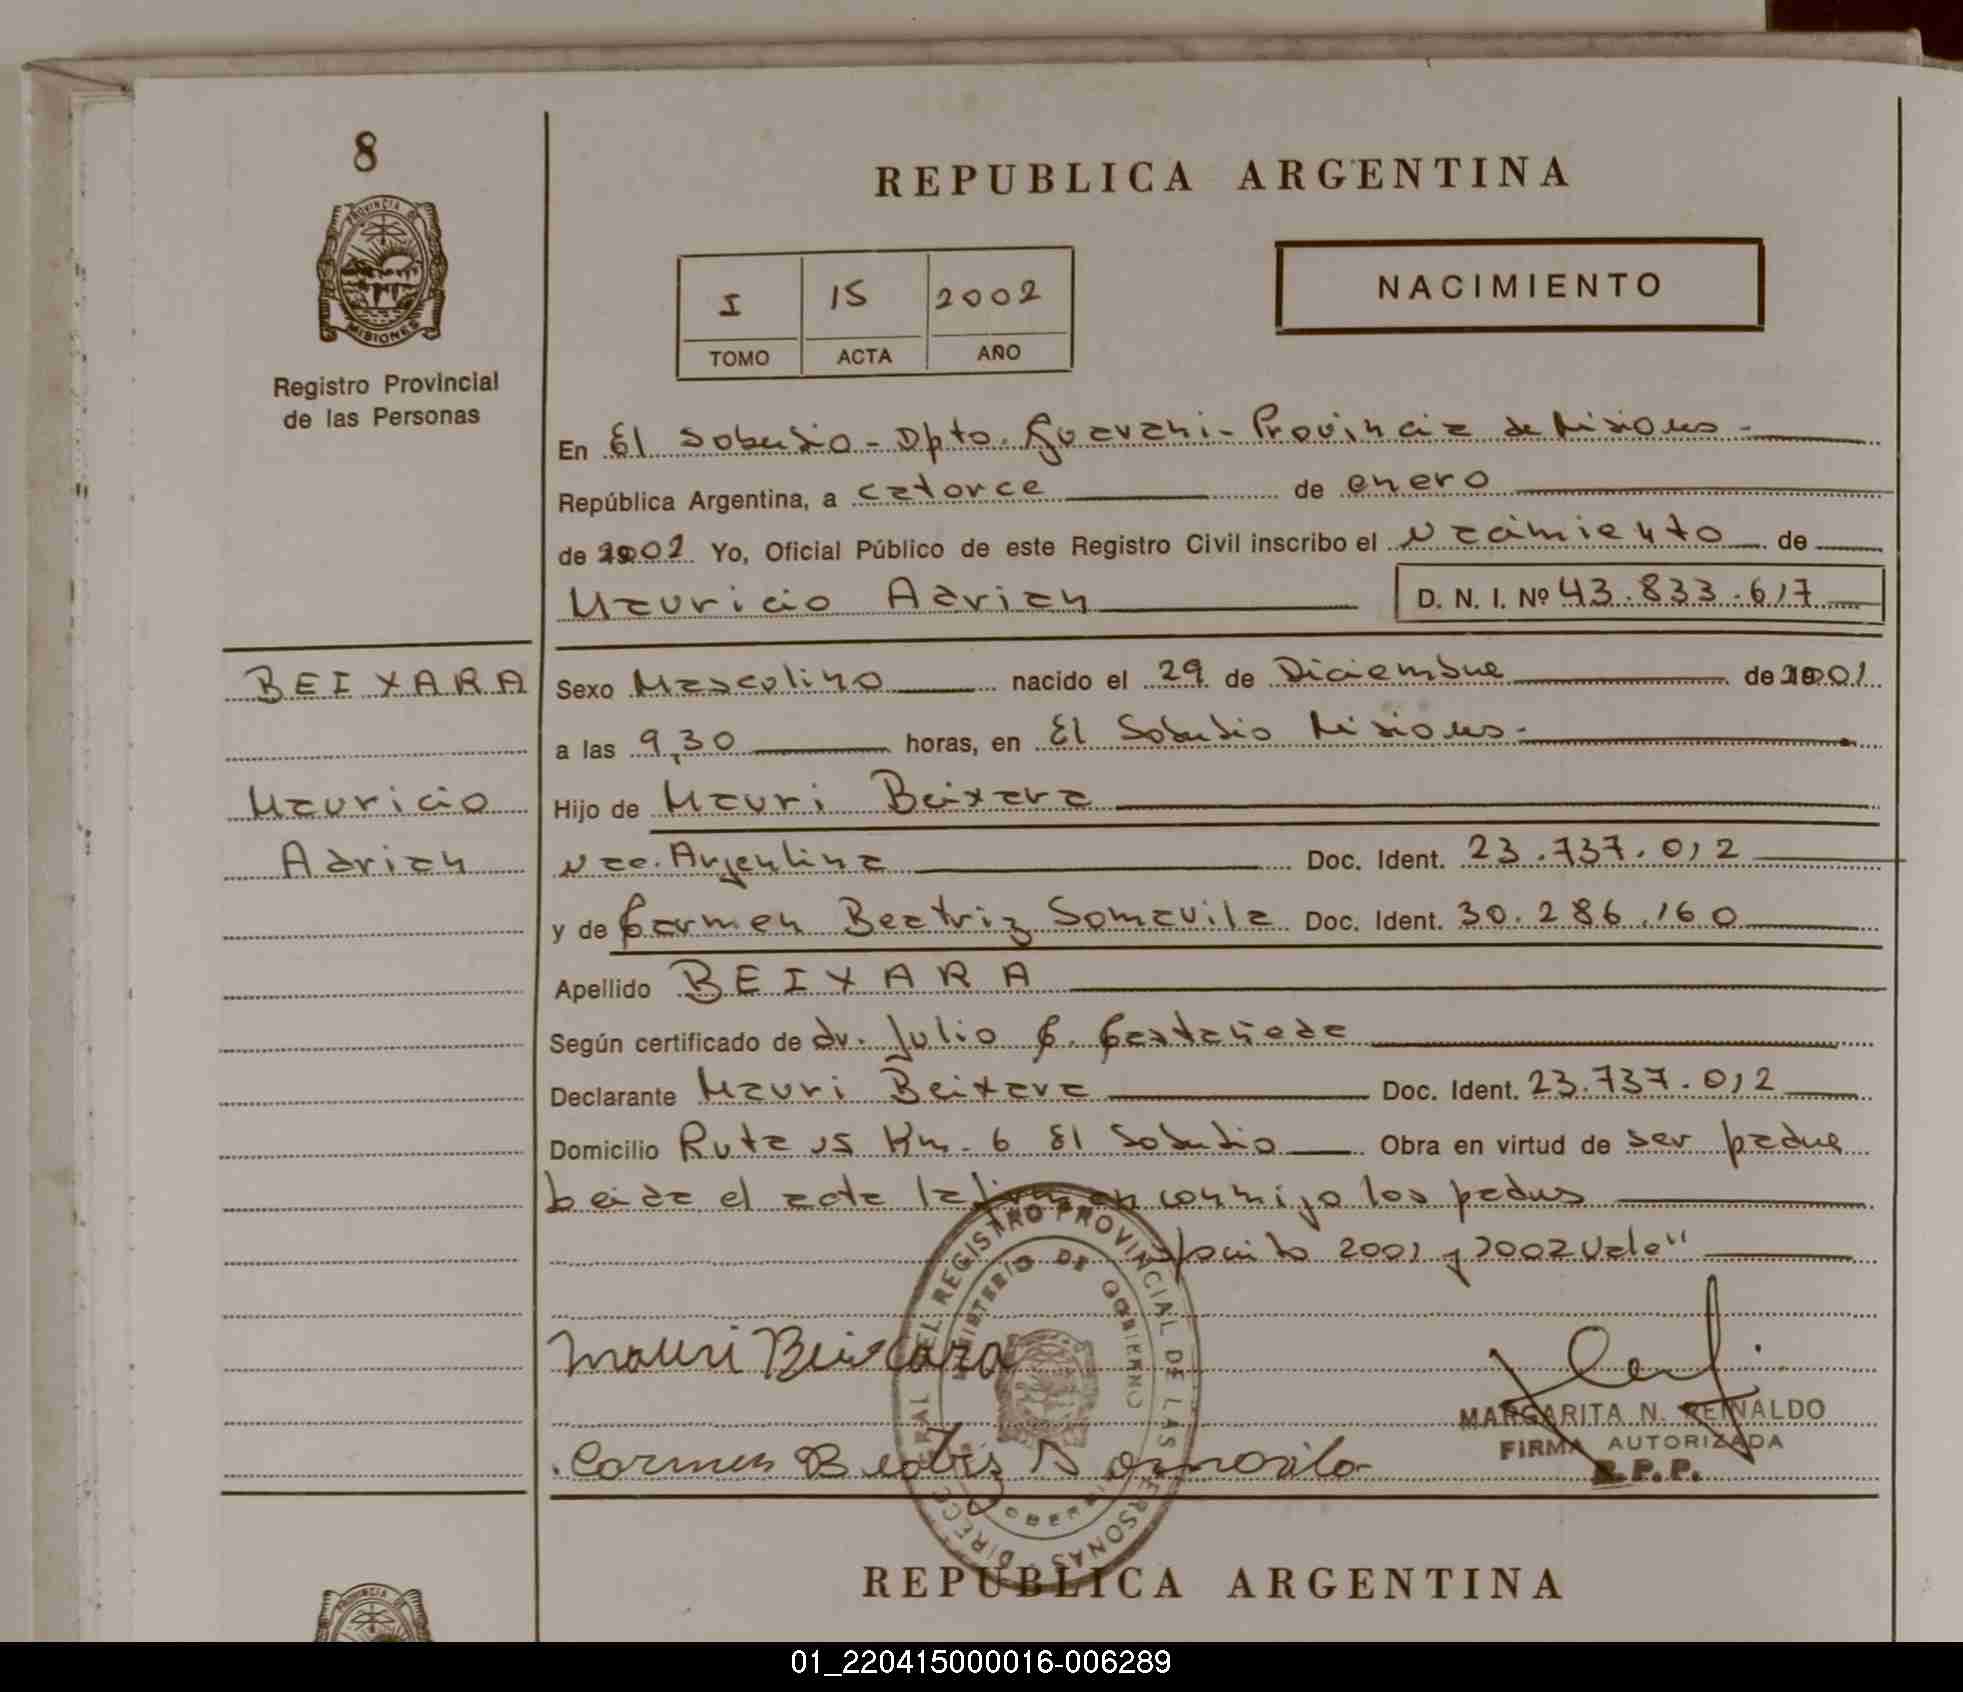 8
REPUBLICA ARGENTINA
PROVINCIA DE
MISIONES
Registro Provincial
de las Personas
I 15 2002
TOMO ACTA AÑO
NACIMIENTO
En El Soberbio - Dpto. Guarani - Provincia de Misiones -
República Argentina, a catorce de enero
de 2002 Yo, Oficial Público de este Registro Civil inscribo el Nacimiento de
Mauricio Adrian D. N. I. Nº 43.833.617
BEIXARA
Mauricio
Adrian
Sexo Masculino nacido el 29 de Diciembre de 2001
a las 9,30 horas, en El Soberbio Misiones -
Hijo de Mauri Beixara
Nac. Argentina Doc. Ident. 23.737.012
y de Carmen Beatriz Somavila Doc. Ident. 30.286.160
Apellido BEIXARA
Según certificado de dr. Julio C. Castañeda
Declarante Mauri Beixara Doc. Ident. 23.737.012
Domicilio Ruta 15 Km. 6 El Soberbio Obra en virtud de ser padre
Leida el acta la firman conmigo los padres
s/escrito 2001 y 2002 Vale"
Mauri Beixara
Carmen Beatris Somavila
MARGARITA N. REINALDO
FIRMA AUTORIZADA
R.P.P.
DIRECC GRAL DEL REGISTRO PROVINCIAL DE LAS PERSONAS
MINISTERIO DE GOBIERNO
REPUBLICA ARGENTINA
PROVINCIA DE
01_220415000016-006289